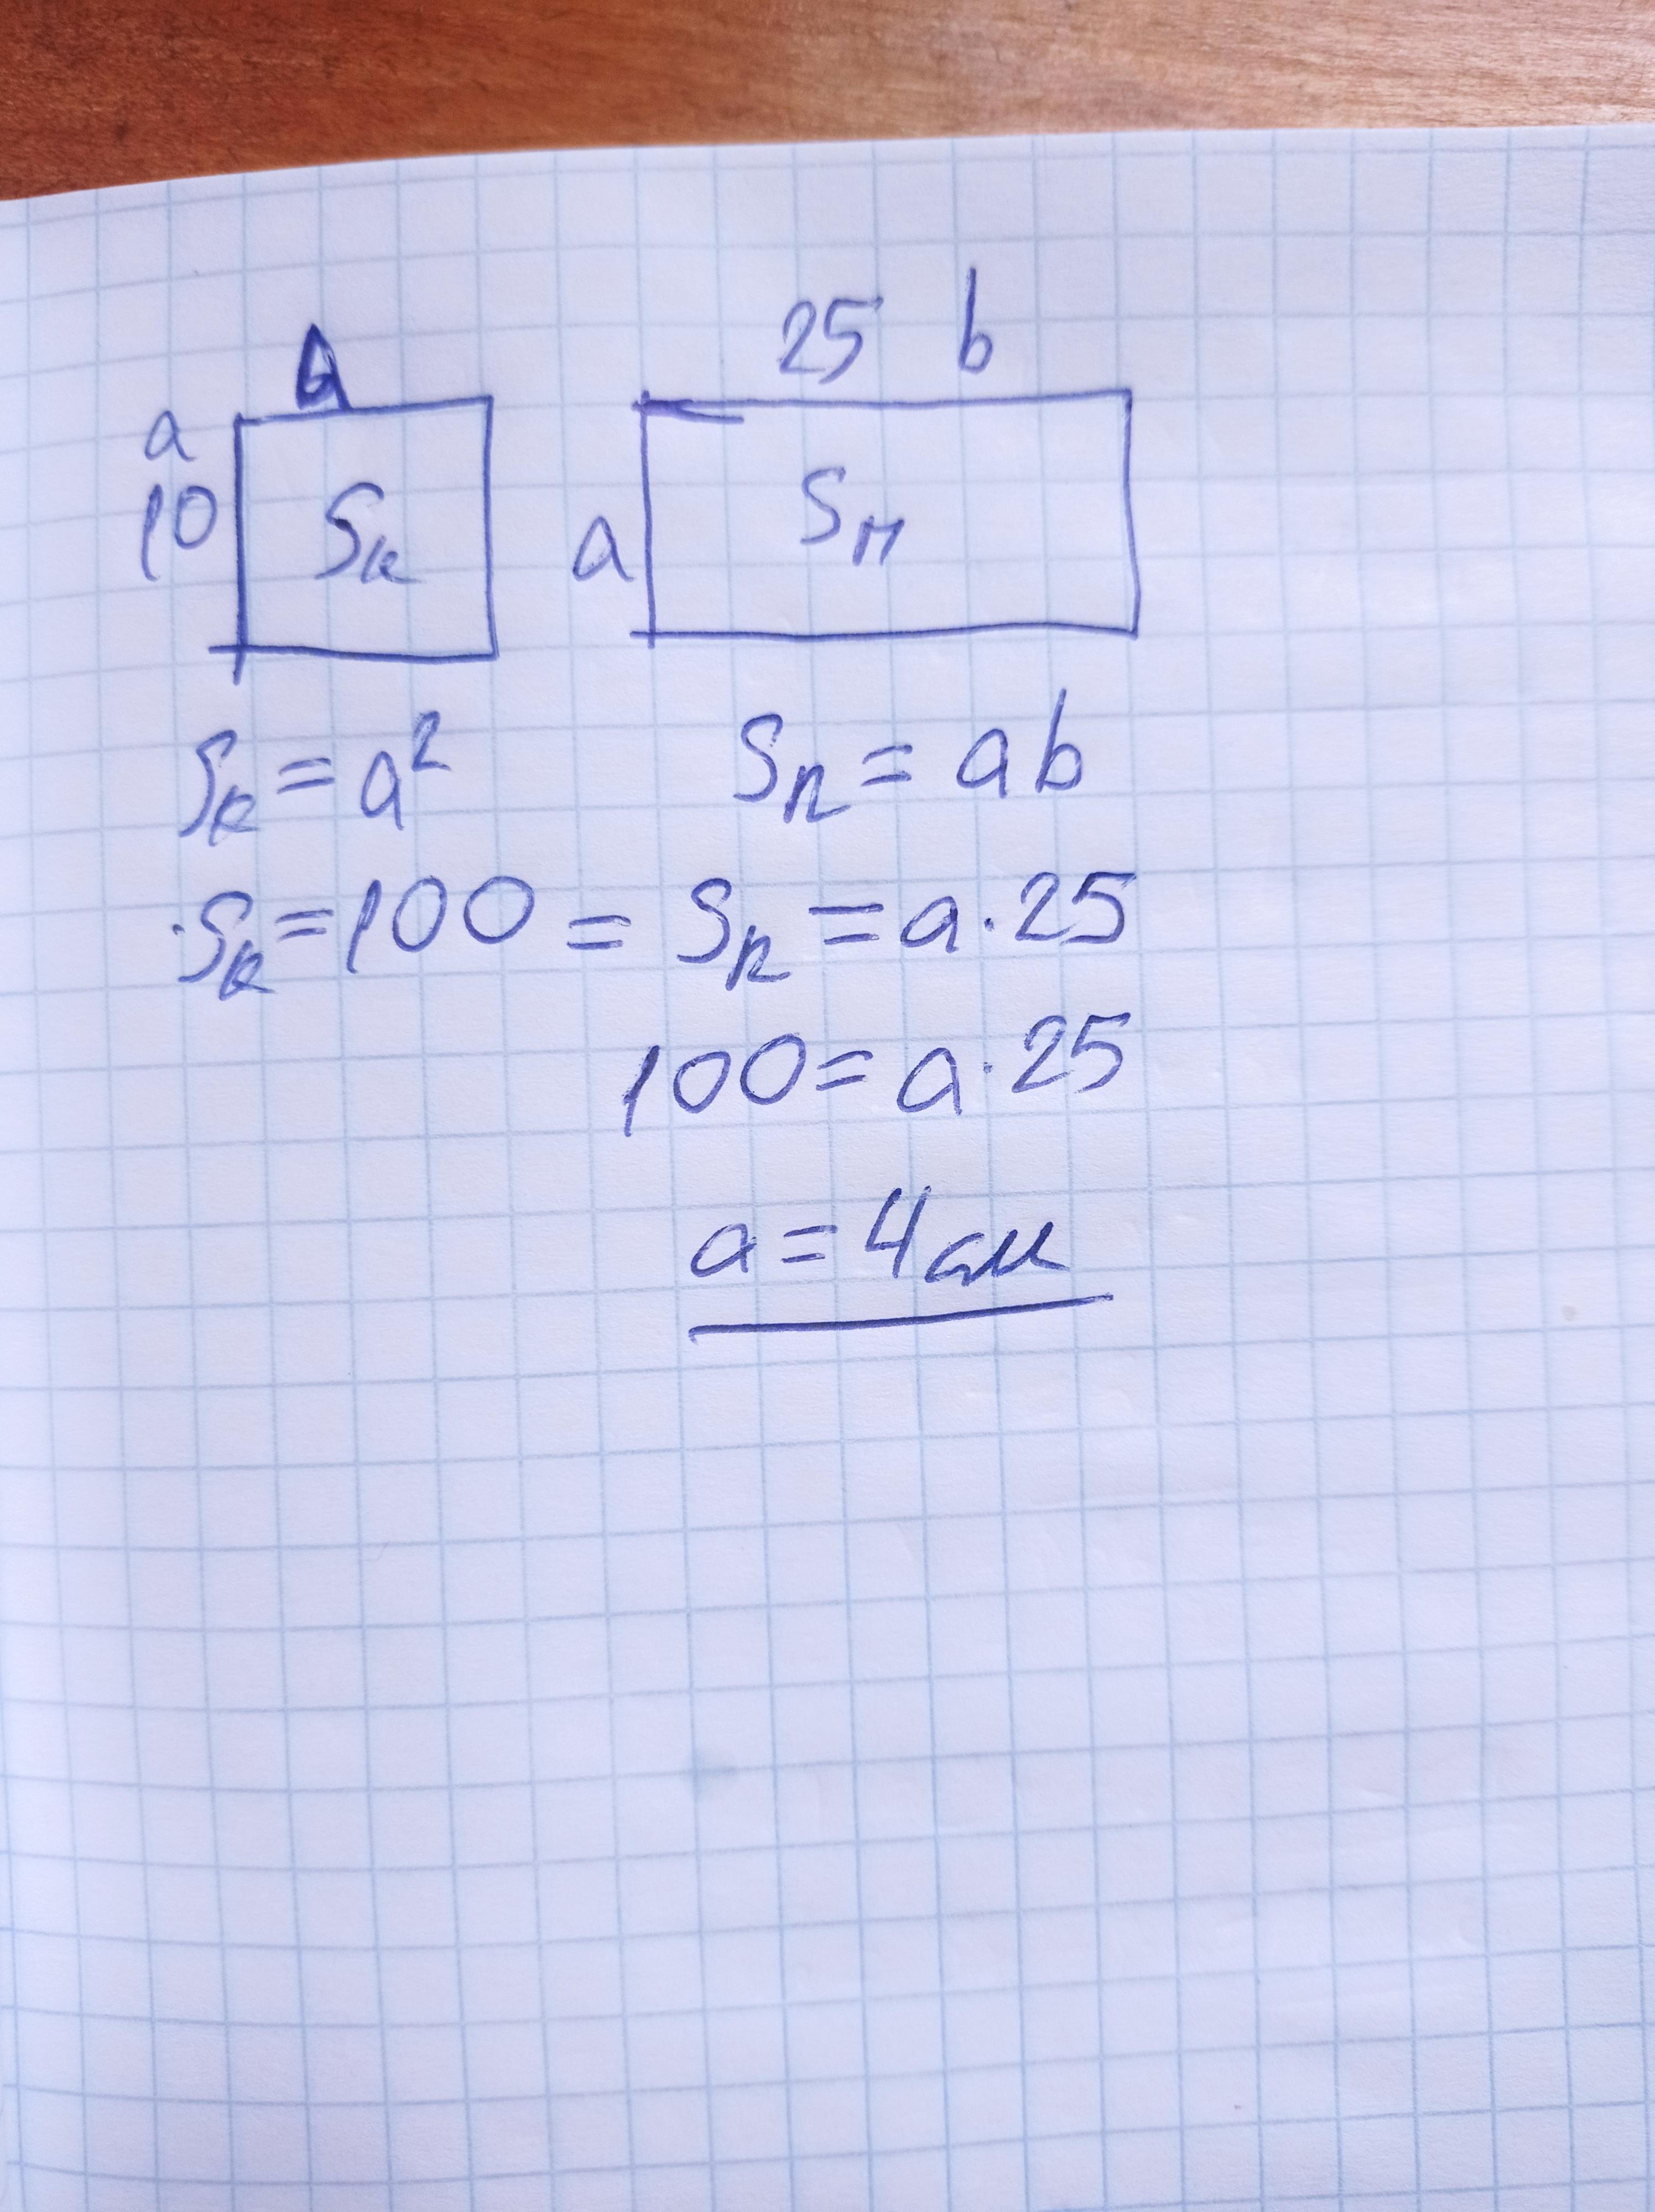 a
25 b
a
10
Sк
a
Sп
Sк = a²
Sп = ab
Sк = 100 = Sп = a·25
100 = a·25
a = 4 см